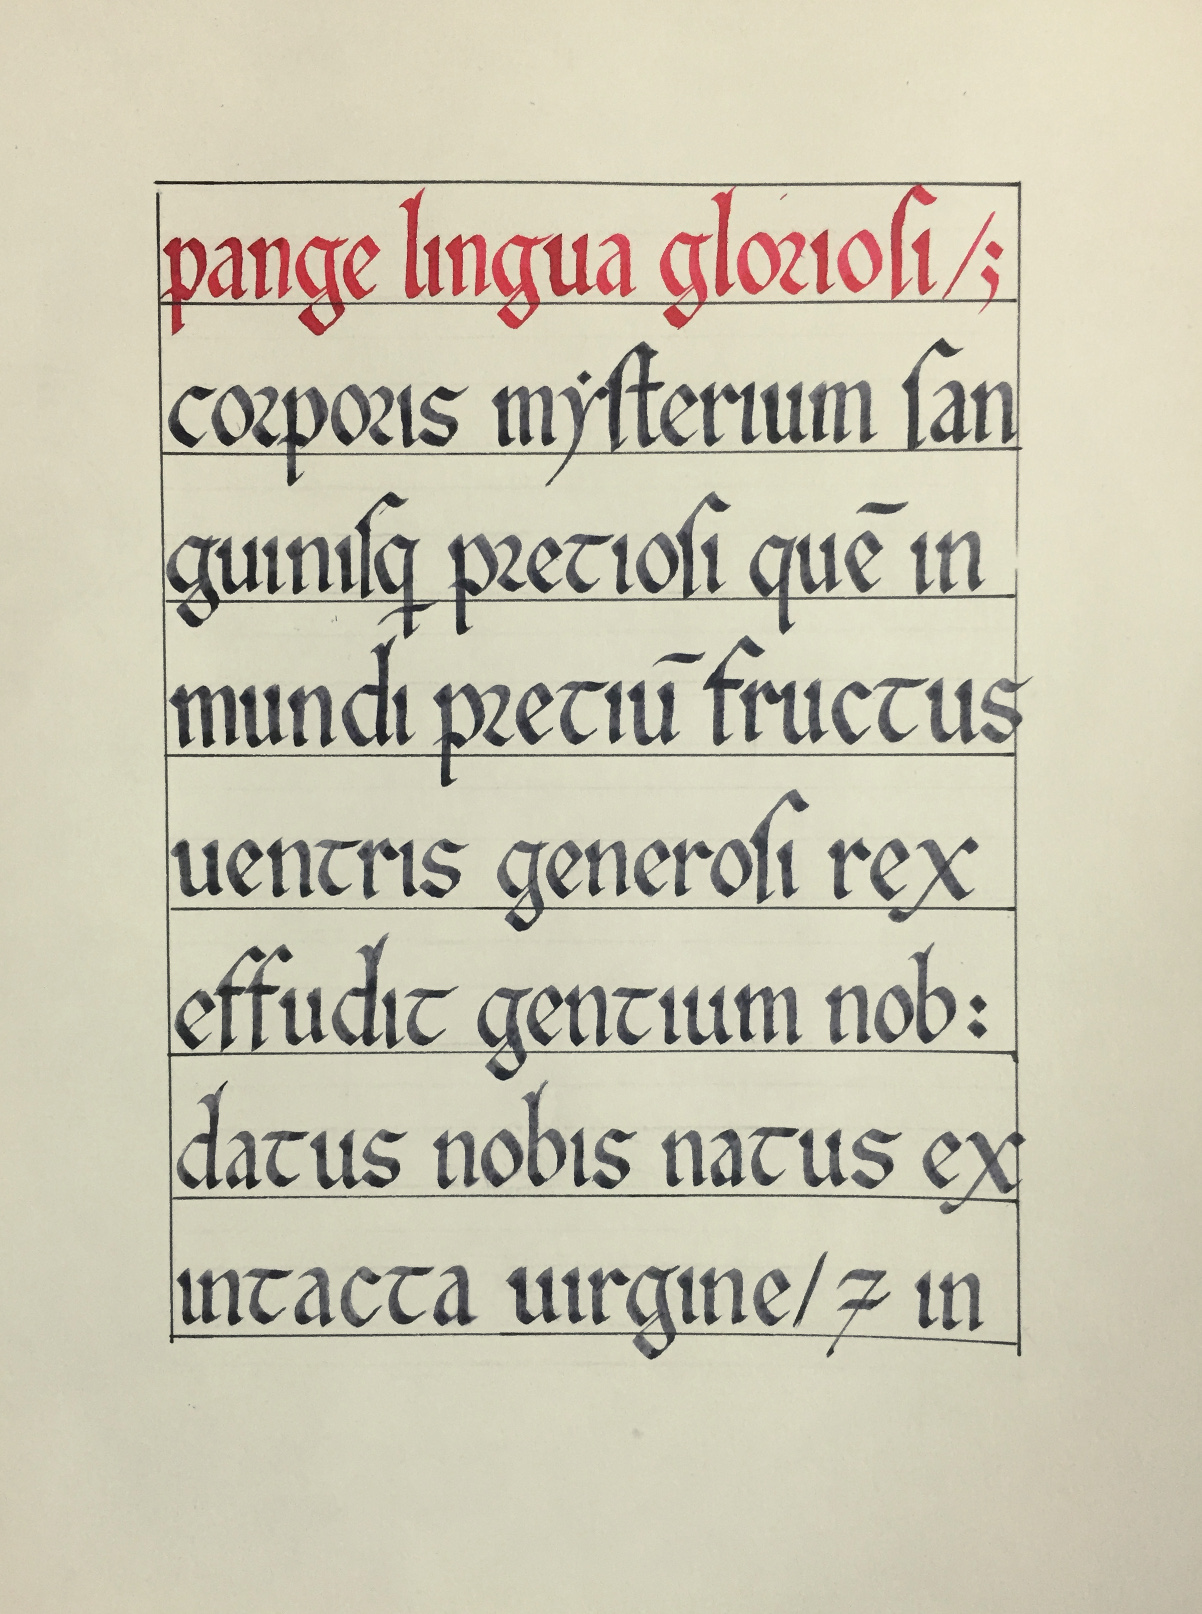 pange lingua glorioſi /;
corporis mẏſterium ſan
guiniſꝗ pretioſi quē in
mundi pretiū fructus
uentris generoſi rex
effudit gentium nob:
datus nobis natus ex
intacta uirgine/ ⁊ in